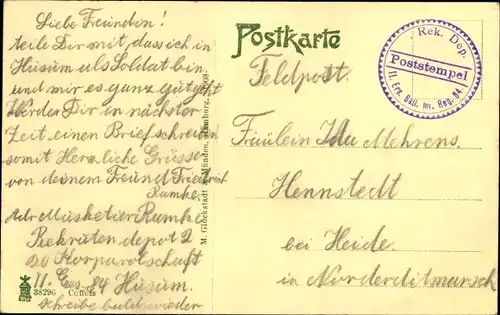 Liebe Freundin!
teile Dir mit, dass ich in
Husum als Soldat bin
und mir es ganz gut geht
Werde Dir in nächster
Zeit einen Brief schreiben
somit Herzliche Grüsse
von deinem Freund Friedrich
Rumke
Adr Musketier Rumke
Rekruten depot 2
20 Korparolschaft
II. Ers. 84 Husum.
schreibe bald wieder
38296
M. Glückstadt & Münden, Hamburg, 1908
Postkarte
Feldpost.
Rek. Dep.
Poststempel
II. Ers. Batl. Inf. Reg. 84.
Fräulein Ida Mehrens.
Hennstedt
bei Heide.
in Norderditmarsch